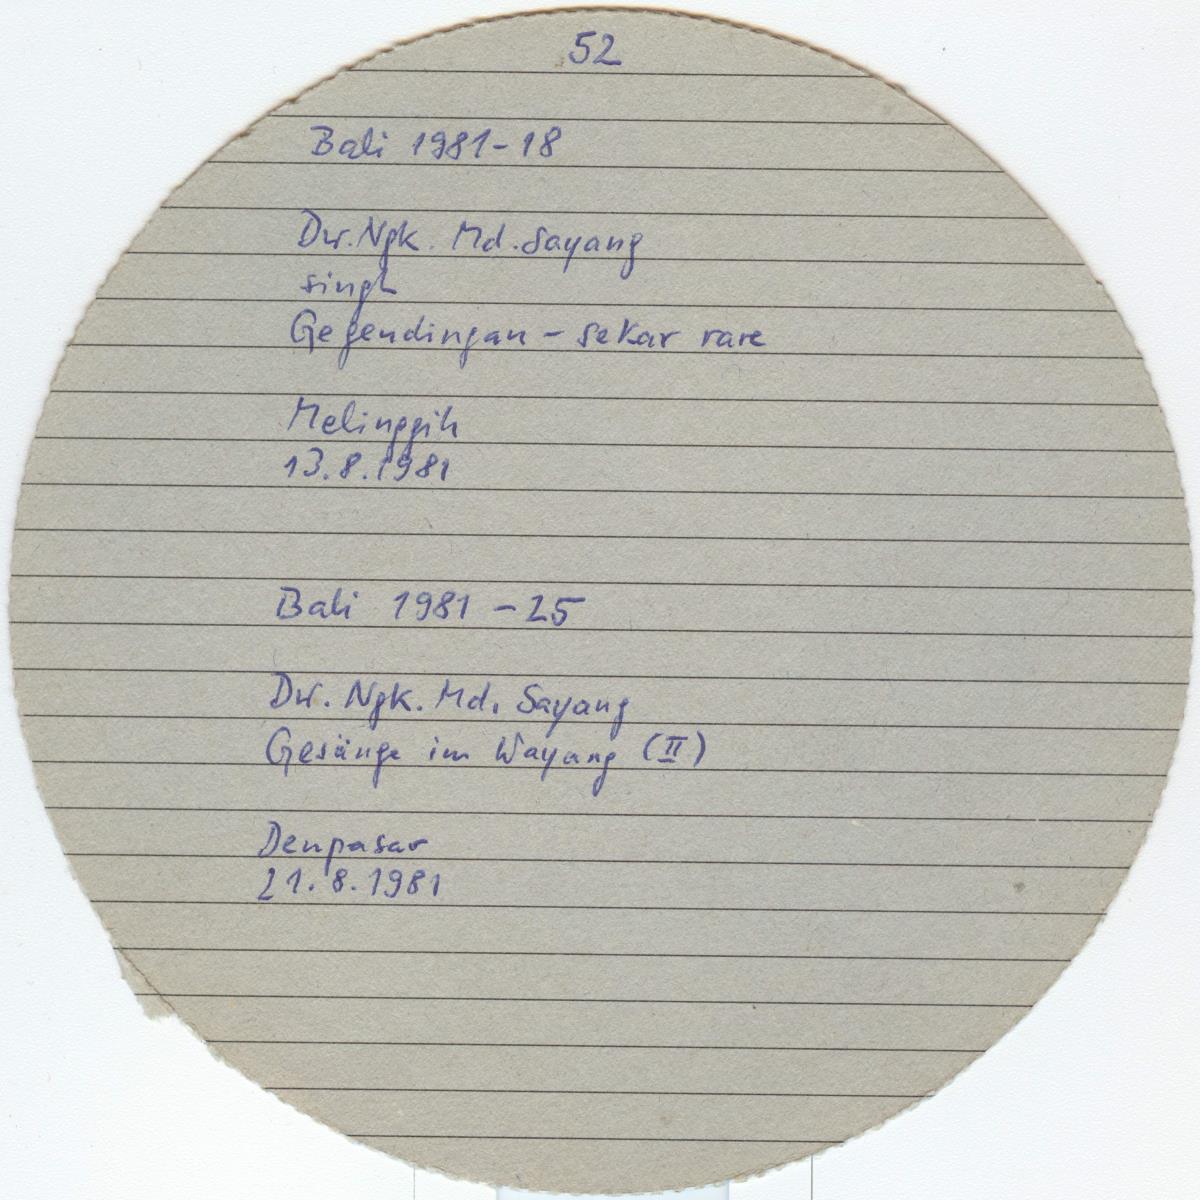 52
Bali 1981-18
Dw. Ngk. Md. Sayang
singt
Gegendingan - sekar rare
Melinggih
13.8.1981
Bali 1981 - 25
Dw. Ngk. Md. Sayang
Gesänge im Wayang (II)
Denpasar
21.8.1981